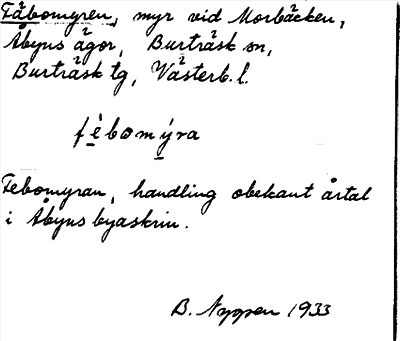 Fäbomyren, myr vid Morbäcken,
Åbyns ägor, Burträsk sn,
Burträsk tg, Västerb. l.
fèbomýra
Febomyran, handling obekant årtal
i Åbyns byaskrin.
B. Nygren 1933